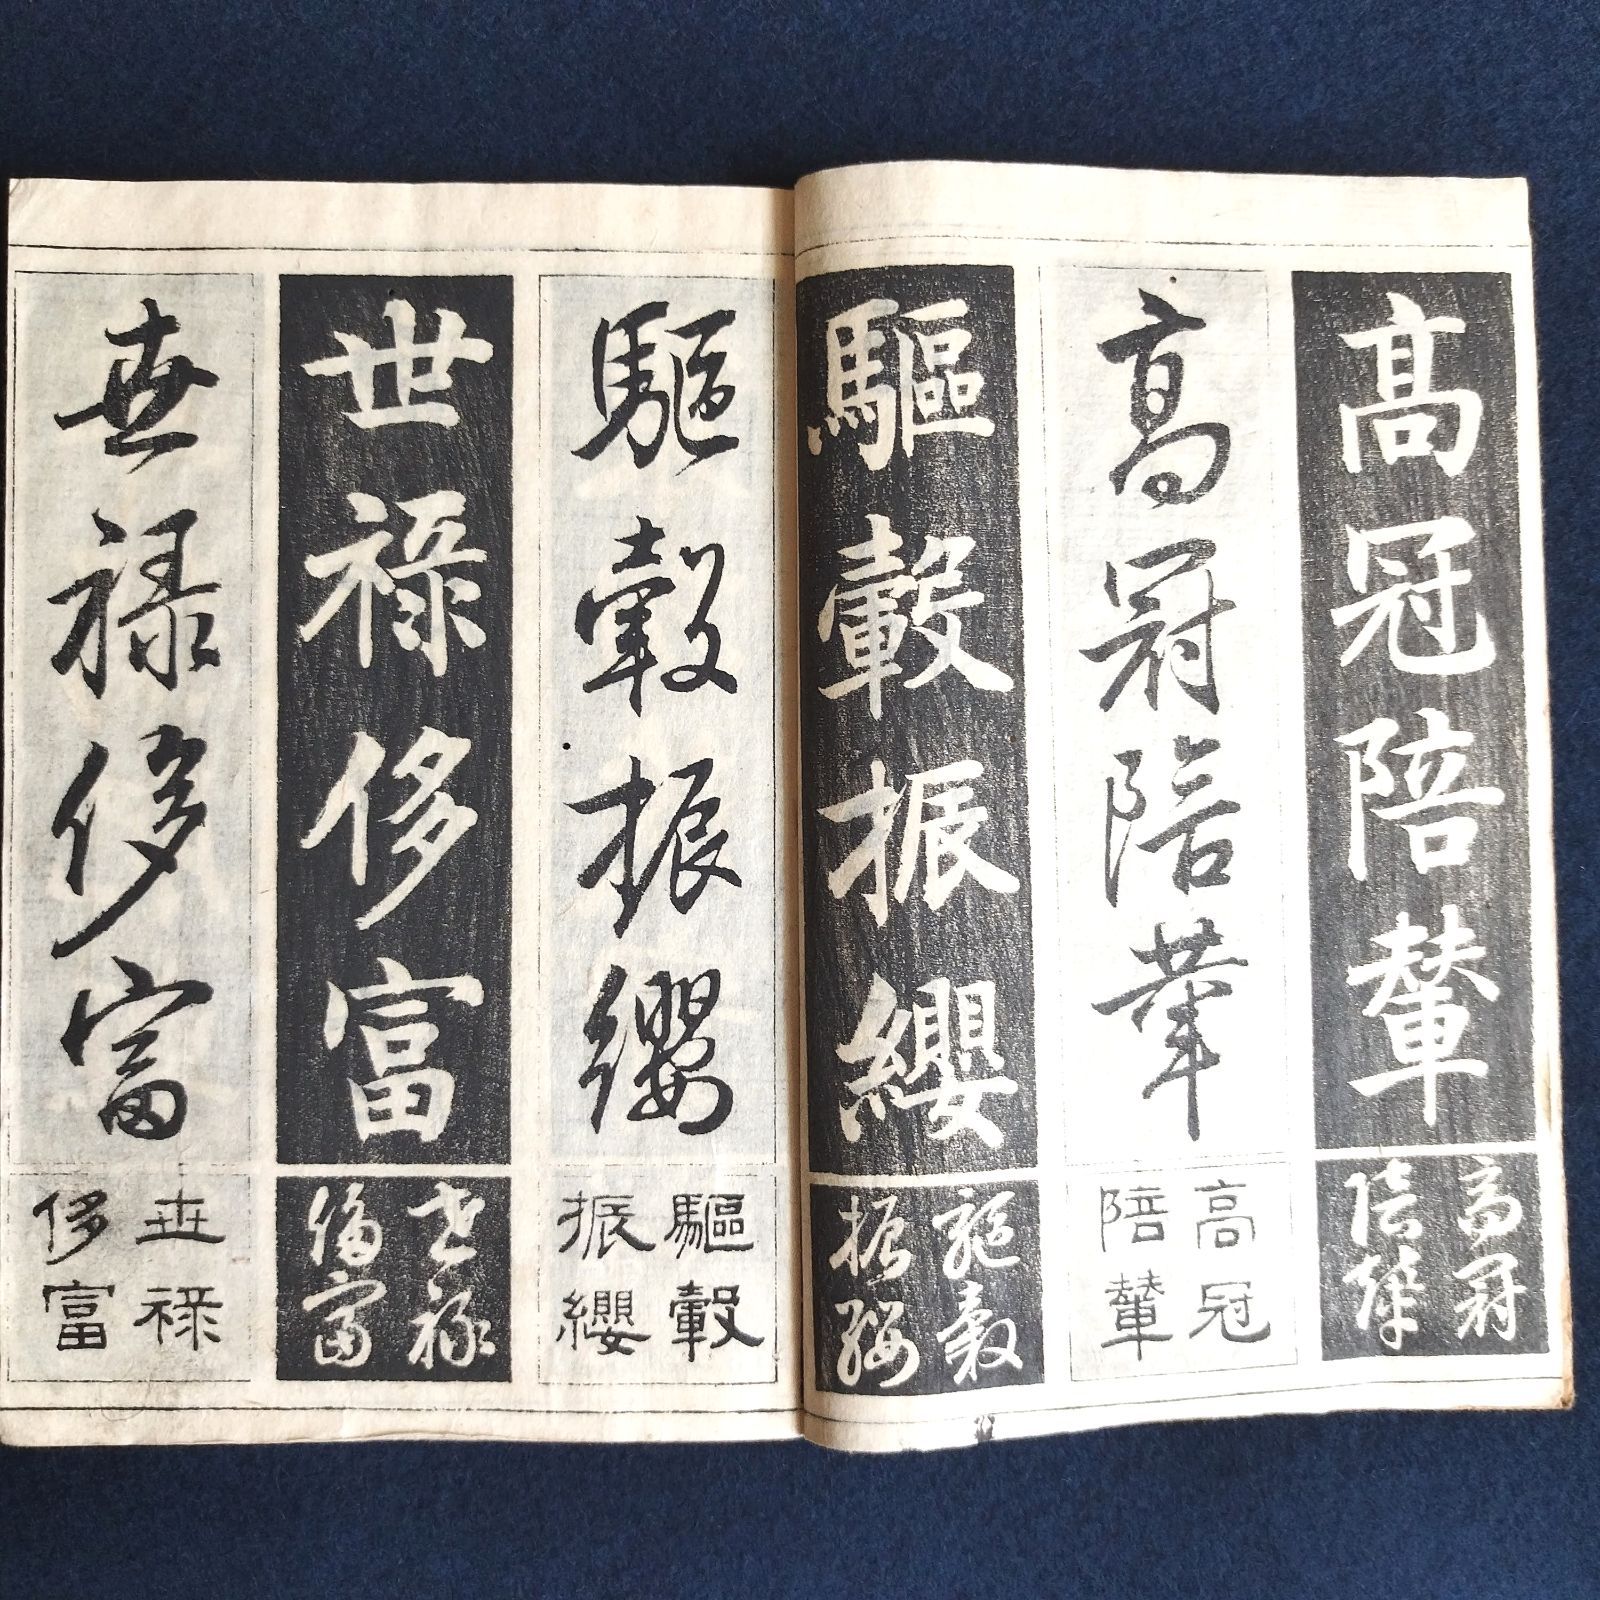 高冠陪輦
高冠
陪輦
高冠陪輦
高冠
陪輦
驅轂振纓
驅轂
振纓
驅轂振纓
驅轂
振纓
世祿侈富
世祿
侈富
世祿侈富
世祿
侈富